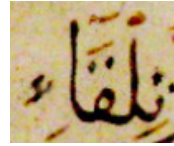 تِلْقَاءِ